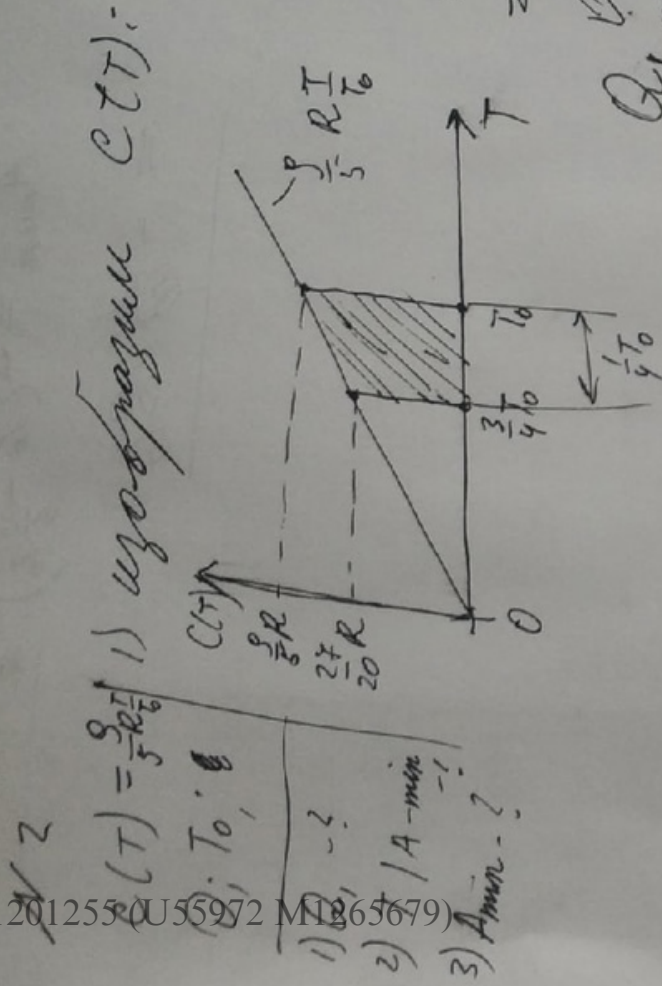 N 2
C(T) = 9/5 R T/T₀
ν; T₀;
1) Q₁ - ?
2) T | A - min - ?
3) Amin - ?
1) изобразим C(T):
C(T)
9/5 R
27/20 R
9/5 R T/T₀
0
3/4 T₀
T₀
T
1/4 T₀
1201255 (U55972 M1265679)